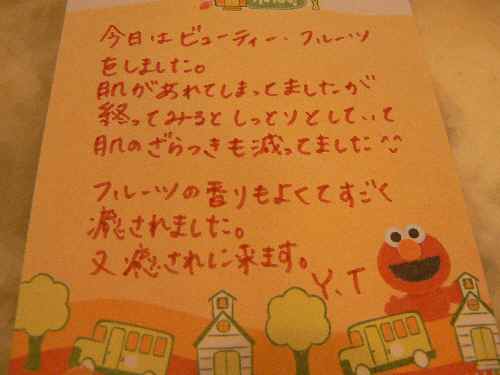 今日はビューティー・フルーツ
をしました。
肌があれてしまってましたが
終ってみるとしっとりとしていて
肌のざらつきも減ってました^^
フルーツの香りもよくてすごく
癒されました。
又癒されに来ます。
Y、T